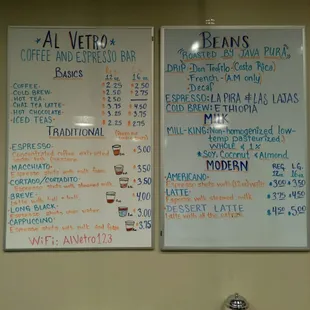 AL VETRO
COFFEE AND ESPRESSO BAR
BASICS
12oz. 16oz.
COFFEE: $2.25 $2.50
COLD BREW: $2.75
HOT TEA:
CHAI TEA LATTE: $3.75 $4.50
HOT CHOCOLATE:
ICED TEAS:
TRADITIONAL
ESPRESSO:
$3.00
MACCHIATO:
$3.50
CORTADO/CORTADITO:
$3.50
BREVE:
Latte with half + half
$4.00
LONG BLACK:
Espresso shots over water
$3.00
CAPPUCCINO:
$3.75
WiFi: AlVetro123
BEANS
"ROASTED BY JAVA PURA"
DRIP - Don Teofilo (Costa Rica)
- French - A.M only
- Decaf
ESPRESSO: LA PIRA & LAS LAJAS
COLD BREW: ETHIOPIA
MILK
MILL-KING: Non-homogenized low-
temp pasteurized
WHOLE & 2%
* Soy, Coconut & Almond
MODERN
REG. LG.
12oz 16oz
AMERICANO:
$3.00 $3.50
LATTE:
Espresso with steamed milk
$3.75 $4.50
DESSERT LATTE
$4.50 5.00